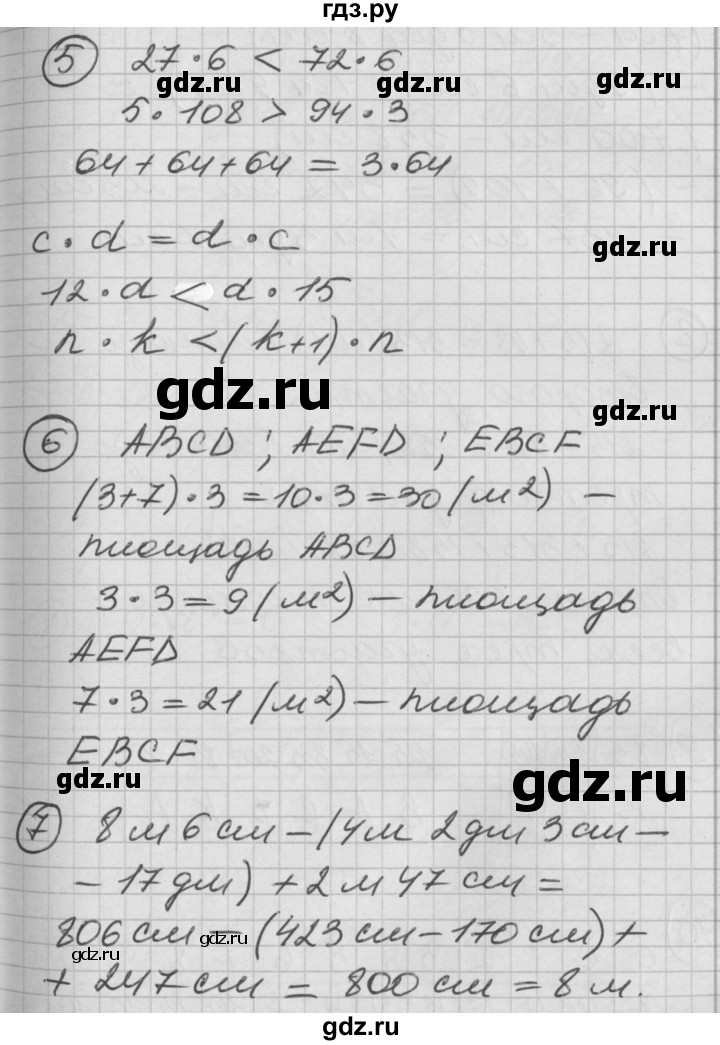 гдз.ру
5 27 · 6 < 72 · 6
gdz.ru gdz.ru
5 · 108 > 94 · 3
64 + 64 + 64 = 3 · 64
c · d = d · c
gdz.ru
12 · d < d · 15
n · k < (k+1) · n
gdz.ru
gdz.ru
6 ABCD ; AEFD ; EBCF
(3+7) · 3 = 10 · 3 = 30 (м²) —
площадь ABCD
3 · 3 = 9 (м²) — площадь
AEFD
7 · 3 = 21 (м²) — площадь
EBCF
gdz.ru gdz.ru
7 8 м 6 см — (4 м 2 дм 3 см —
— 17 дм) + 2 м 47 см =
806 см — (423 см — 170 см) +
gdz.ru gdz.ru
+ 247 см = 800 см = 8 м.
gdz.ru